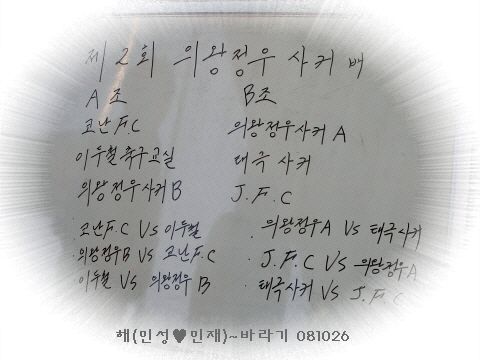 제 2 회 의왕정우 사커 배
A 조
B조
코난 F.C
의왕정우사커 A
이두철축구교실
태극 사커
의왕정우사커 B
J. F. C
코난F.C VS 이두철
의왕정우A VS 태극사커
의왕정우B VS 코난F.C
J. F. C VS 의왕정우A
이두철 VS 의왕정우 B
태극사커 VS J. F. C
해(민성♥민재)~바라기 081026